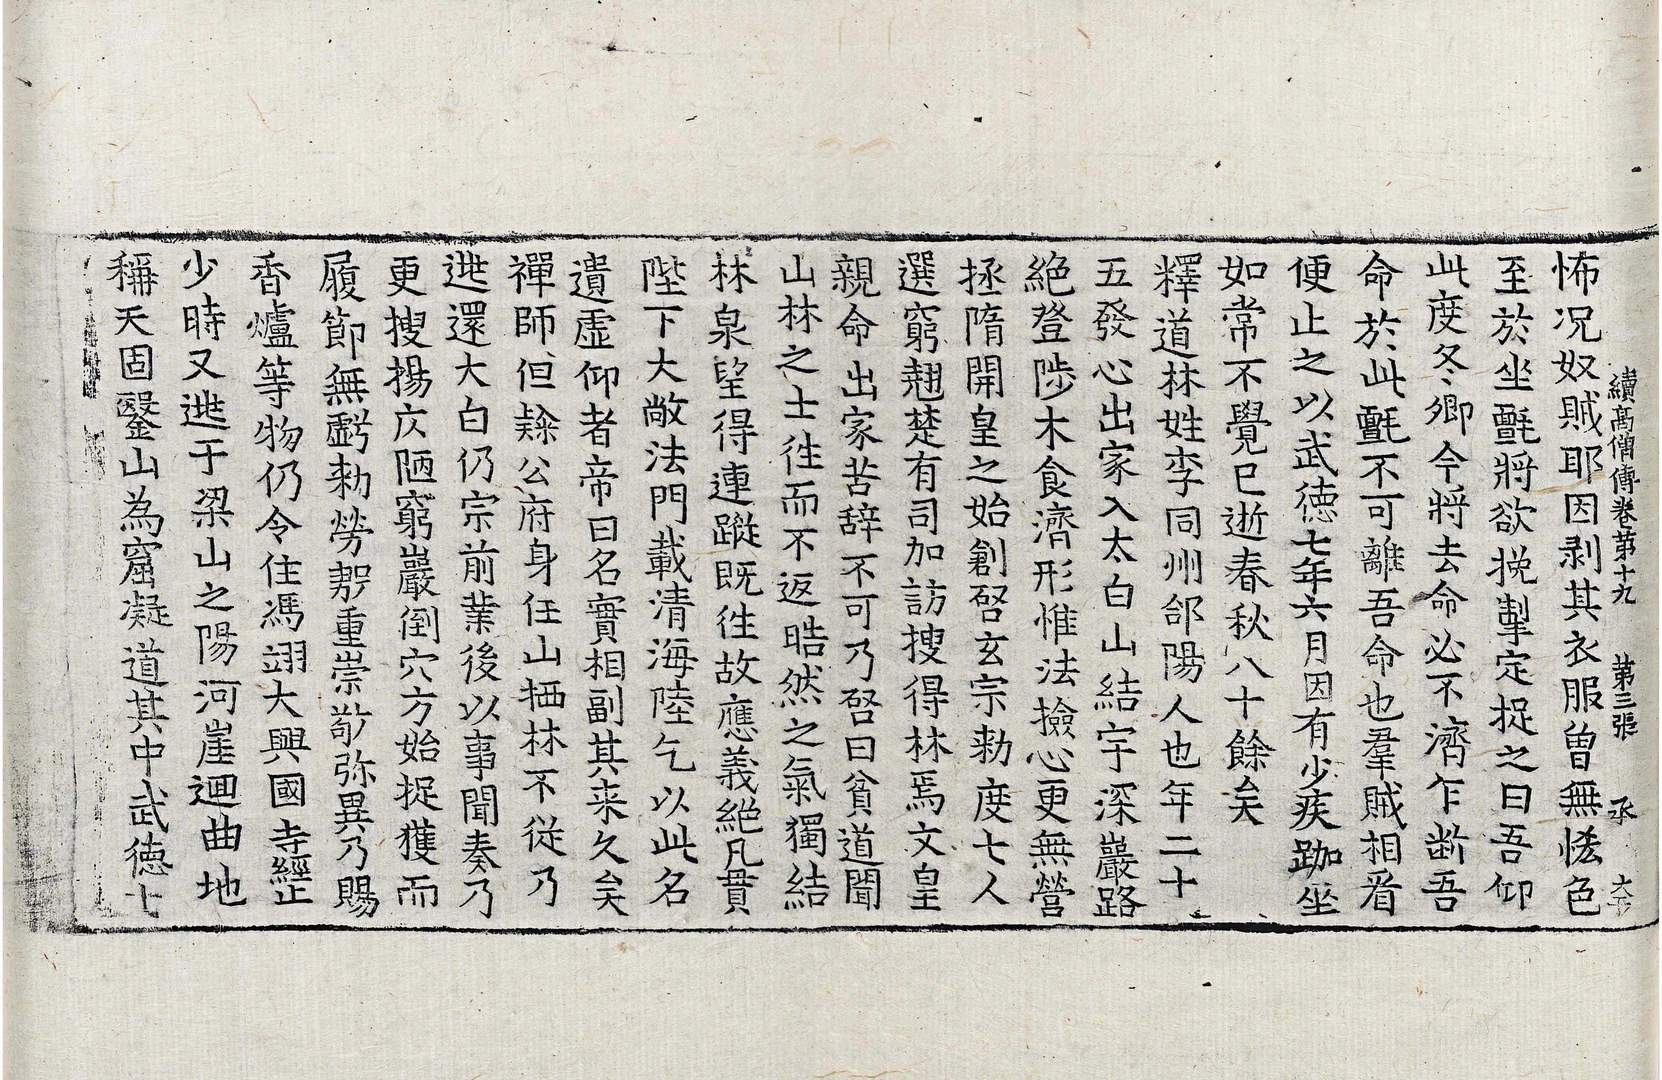 續高僧傳卷第十九　第三張　承
怖况奴賊耶因剥其衣服曽無恡色
至於坐氈將欲挽掣定捉之曰吾仰
此度冬鄉今將去命必不濟乍斷吾
命於此氈不可離吾命也羣賊相看
便止之以武德七年六月因有少疾跏坐
如常不覺已逝春秋八十餘矣
釋道林姓李同州郃陽人也年二十
五發心出家入太白山結宇深巖路
絶登陟木食濟形惟法撿心更無營
拯隋開皇之始創啓玄宗勑度七人
選窮翹楚有司加訪搜得林焉文皇
親命出家苦辞不可乃啓曰貧道聞
山林之士徃而不返皓然之氣獨結
林泉望得連蹤既徃故應義絶凡貫
陛下大敞法門載清海陸乞以此名
遺虛仰者帝曰名實相副其来久矣
禪師但隸公府身任山栖林不從乃
逃還大白仍宗前業後以事聞奏乃
更搜揚仄陋窮巖倒穴方始捉獲而
履節無虧勑勞殷重崇敬弥異乃賜
香爐等物仍令住馮翊大興國寺經止
少時又逃于梁山之陽河崖迴曲地
稱天固鑿山為窟凝道其中武德七